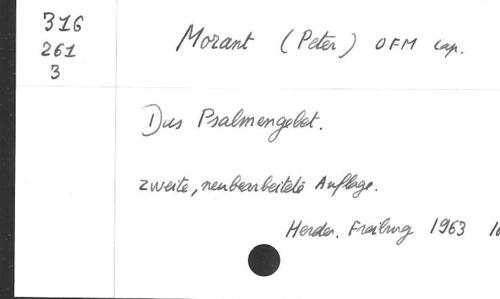 316
261
3
Morant (Peter) OFM Cap.
Das Psalmengebet.
zweite, neubearbeitete Auflage.
Herder. Freiburg 1963